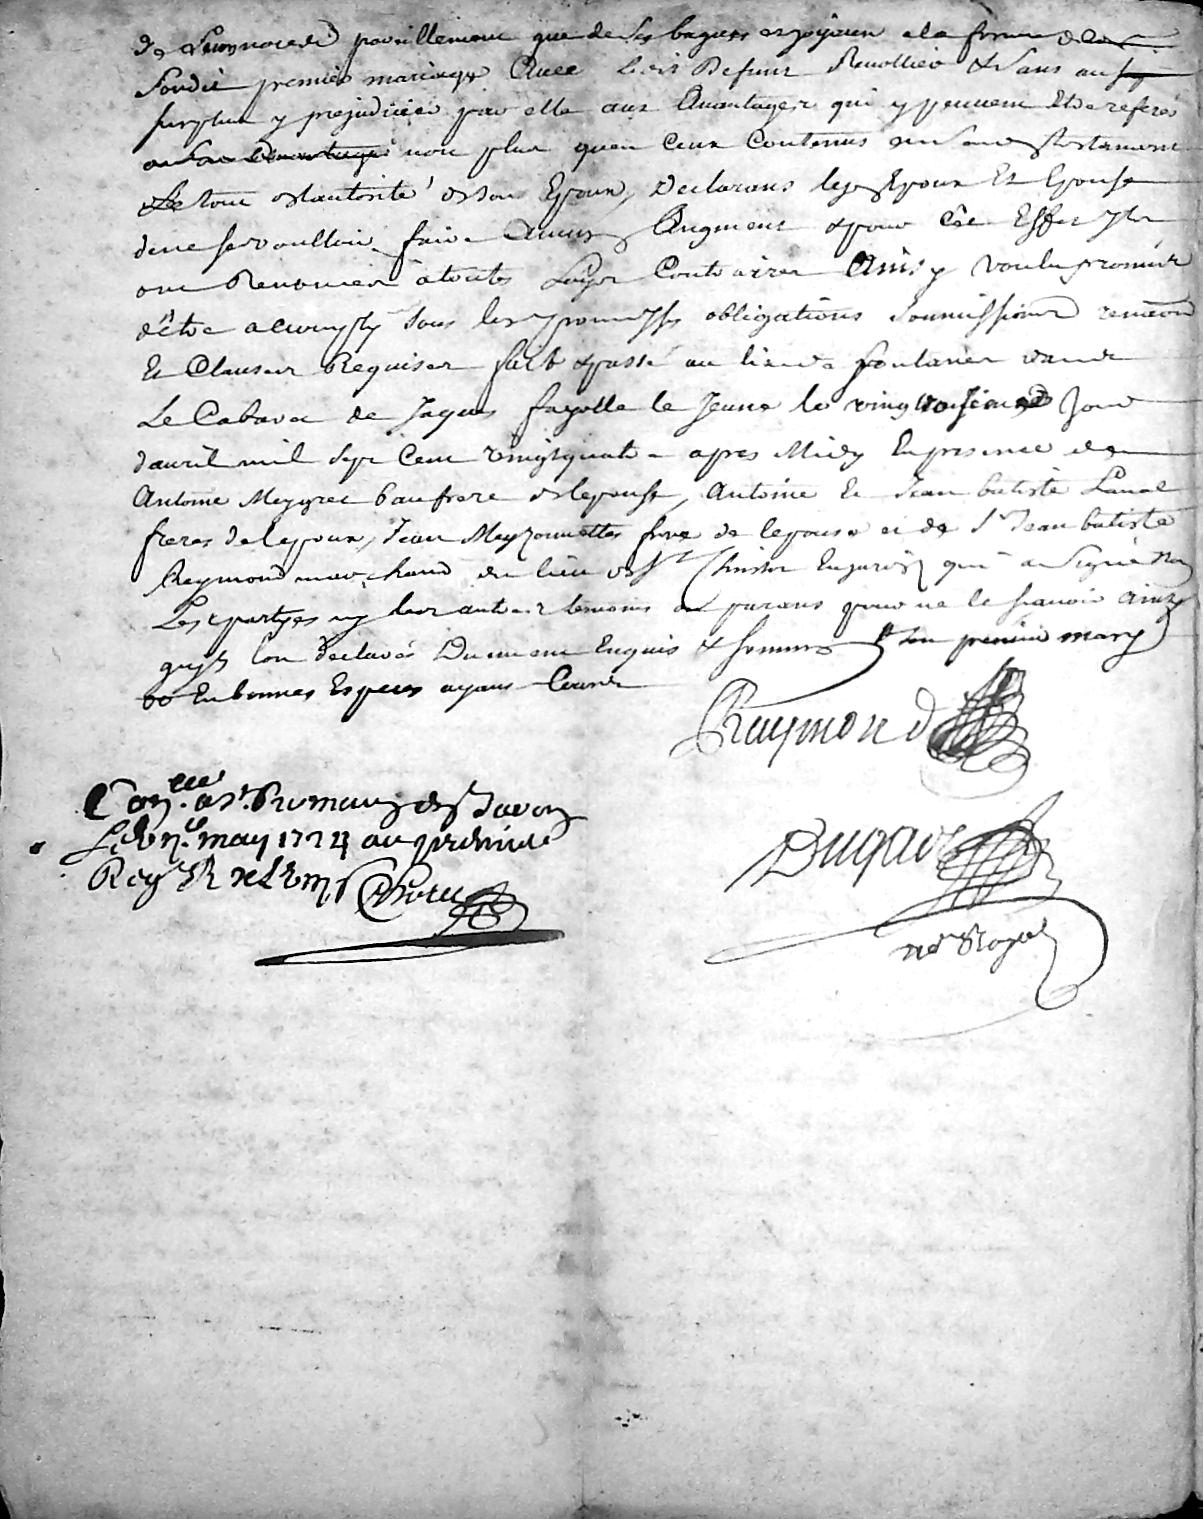 pareillement que de ses bagues et joyaux a la forme de
sondit premier mariage avec ledit deffunt Revollier & sans au
surplus y prejudicier par elle aux avantages qui y peuvent etre referés
non plus quen ceux contenus en son testament
Le tout de lautorité de son Epoux, declarans lesd Epoux Et Epouse
de ne se voulloir faire aucun augment & pour cêt Effet ils
ont Renoncé a toutes Loix Contraires Ainsy voulu promis
dêtre accomply sous les promesses obligations soumissions renōn
Et Clauses Requises fait & passé au lieu de fontanes dans
Le Cabaret de Jaques fayolle le Jeune le vingtroisieme Jour
davril mil sept Cent vingtquatre apres Midy En presence de
Antoine Meygret baufrere de lepouse, Antoine Et Jean batiste
freres de lepoux, Jean Meyzonnettes frere de lepouse et de Sr Jean batiste
Reymond marchand du lieu de St Christo En Jarest qui a signé non
Les partyes ny les autres temoins et parans pour ne le sçavoir ainsy
quils lon declarés Dument Enquis & sommés son premier mary
En bonnes Especes ayans Cours
Raymond
Con.lée a St Romain
Le may 1724 au premier
Reg R
Dugas
nore Royal